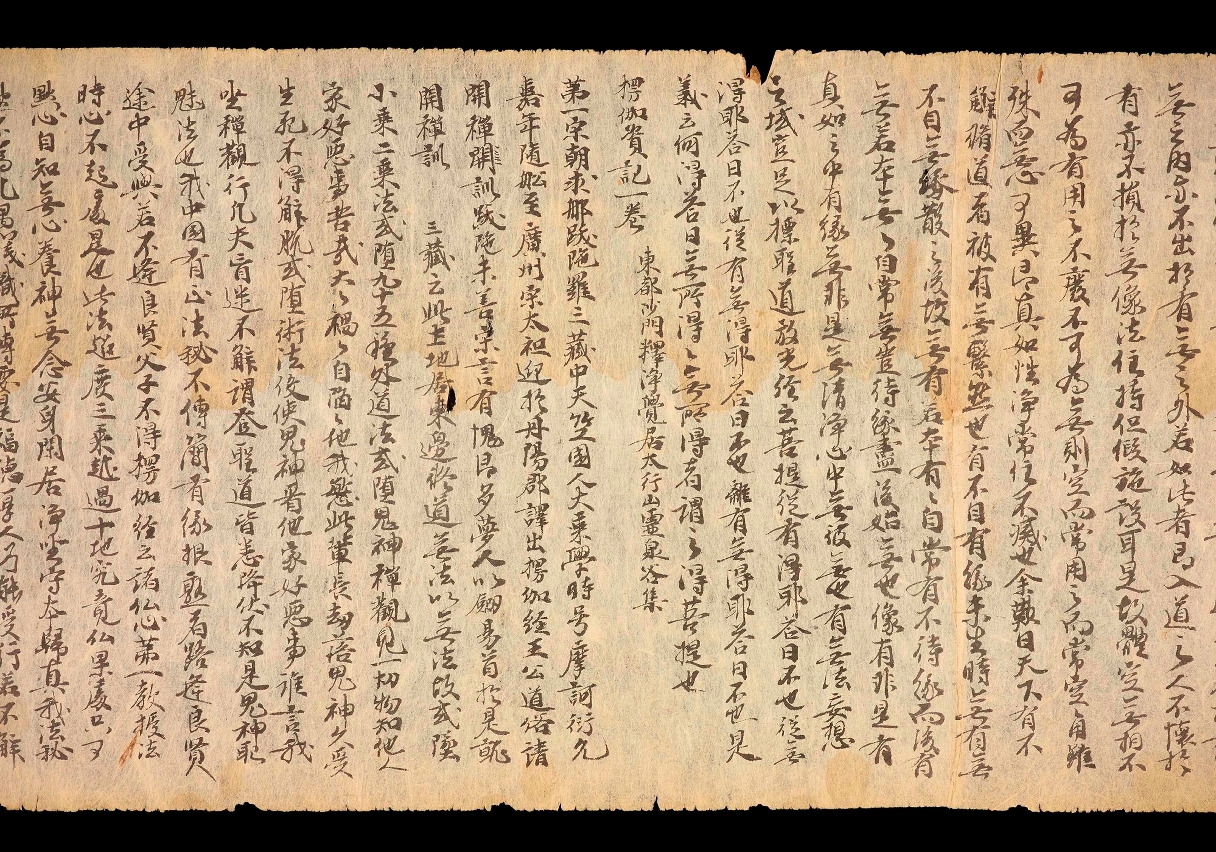 無之內亦不出於有無之外若如此者即入道之人不懷於
有亦不損於無像法住持但假施設耳是故體空無相不
可為有用之不廢不可為無則空而常用之而常空用雖
殊而無心可異即真如性淨常住不滅也余歎曰天下有不
解脩道者被有無繫然也有不自有緣未生時無有無
不自無緣散之後故無有若本有々自常有不待緣而後有
無若本無々自常無豈待緣盡後始無也像有非是有
真如之中有緣無非是無清淨心中無彼無也有無法妄想
之域豈足以標聖道放光經云菩提從有得耶答曰不也從無
得耶答曰不也從有無得耶答曰不也離有無得耶答曰不也是
義云何得答曰無所得々無所得者謂之得菩提也
楞伽資記一卷　東都沙門釋淨覺居太行山靈泉谷集
第一宋朝求那跋陀羅三藏中天竺國人大乘學時号摩訶衍元
嘉年隨舩至廣州宋太祖迎於丹陽郡譯出楞伽經王公道俗請
開禪訓跋陀未善宋言有愧即夕夢人以劍易首於是就
開禪訓　三藏云此土地居東邊修道無法以無法故或墮
小乘二乘法或墮九十五種外道法或墮鬼神禪觀見一切物知他人
家好惡事苦哉大々禍々自陷々他我愍此輩長劫落鬼神久受
生死不得解脫或墮術法役使鬼神看他家好惡事誰言我
坐禪觀行凡夫盲迷不解謂登聖道皆悉降伏不知是鬼神耶
魅法也我中國有正法秘不傳簡有緣根熟者路逢良賢
途中受與若不逢良賢父子不得楞伽經云諸仏心第一教授法
時心不起處是也此法超度三乘越過十地究竟仏果處只可
默心自知無心養神無念安身閑居淨坐守本歸真我法秘